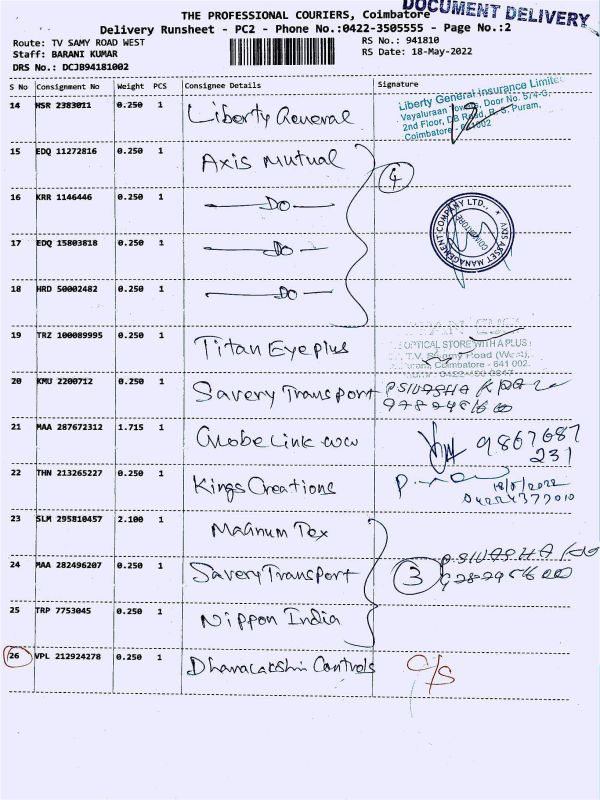 DOCUMENT DELIVERY
THE PROFESSIONAL COURIERS, Coimbatore
Delivery Runsheet - PC2 - Phone No.:0422-3505555 - Page No.:2
Route: TV SAMY ROAD WEST
RS No.: 941810
Staff: BARANI KUMAR
RS Date: 18-May-2022
DRS No.: DCJB94181002
S No Consignment No Weight PCS Consignee Details Signature
14 HSR 2383011 0.250 1 Liberty General
Liberty General Insurance Limited
Vayaluraan Towers, Door No. 574-G,
2nd Floor, DB Road, R. S. Puram,
Coimbatore - 641002
15 EDQ 11272816 0.250 1 Axis Mutual
4
16 KRR 1146446 0.250 1 DO
AXIS ASSET MANAGEMENT COMPANY LTD., *
COIMBATORE
17 EDQ 15803818 0.250 1 DO
18 HRD 50002482 0.250 1 DO
19 TRZ 100089995 0.250 1 Titan Eyeplus
OPTICAL STORE WITH A PLUS
T.V. Samy Road (West),
Coimbatore - 641 002.
20 KMU 2200712 0.250 1 Savery Transport
21 MAA 287672312 1.715 1 Globe Link WW 9867687
231
22 THN 213265227 0.250 1 Kings Creations
18/5/2022
04224377010
23 SLM 295810457 2.100 1 Magnum Tex
24 MAA 282496207 0.250 1 Savery Transport 3
25 TRP 7753045 0.250 1 Nippon India
26 VPL 212924278 0.250 1 Dhanalakshmi Controls O/S